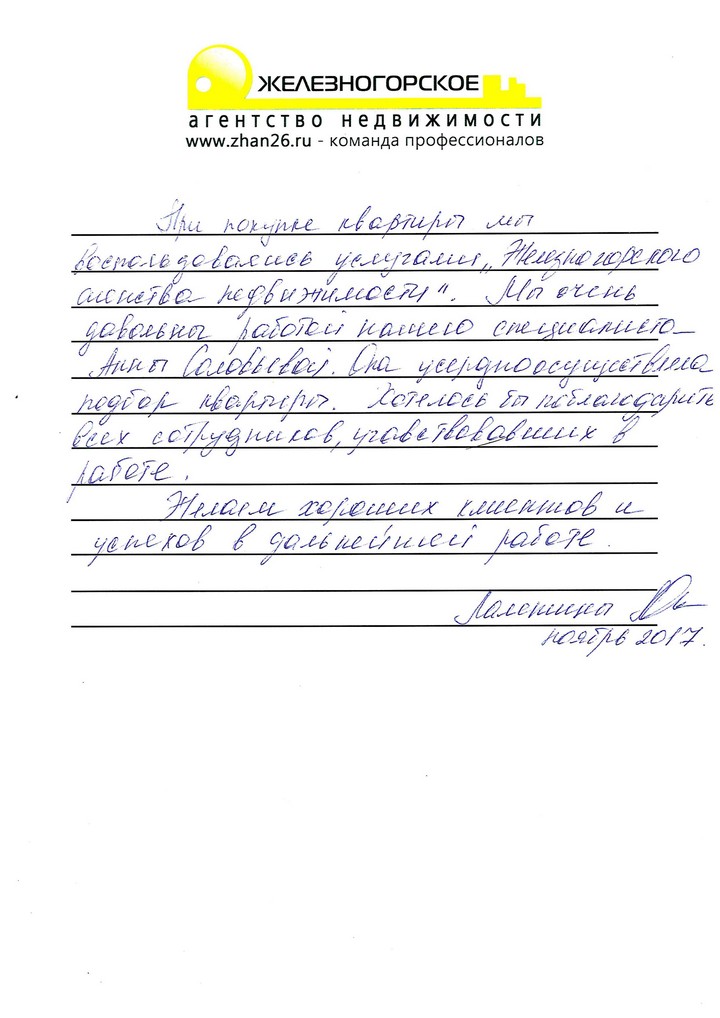 ЖЕЛЕЗНОГОРСКОЕ
агентство недвижимости
www.zhan26.ru - команда профессионалов
При покупке квартиры мы
воспользовались услугами „Железногорского
агенства недвижимости". Мы очень
довольны работой нашего специалиста
Анны Соловьевой. Она усердно осуществляла
подбор квартиры. Хотелось бы поблагодарить
всех сотрудников, учавствовавших в
работе.
Желаем хороших клиентов и
успехов в дальнейшей работе.
ноябрь 2017.